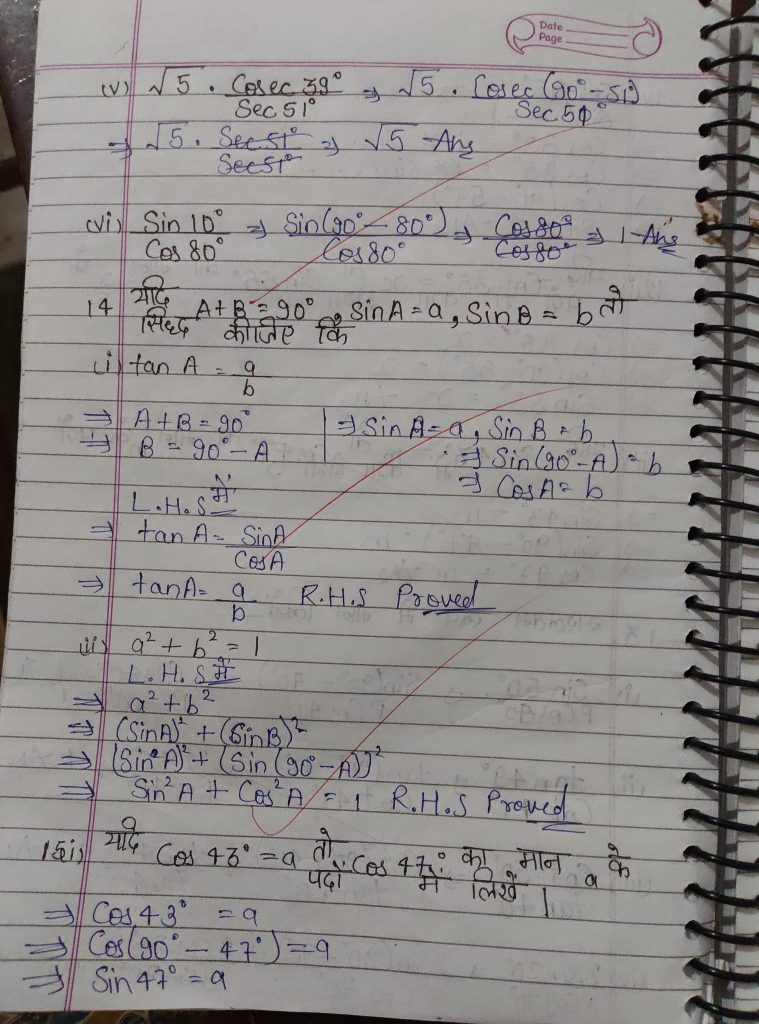 Date
Page
(v) √5 . Cosec 39°/Sec 51° ⇒ √5 . Cosec (90° - 51°)/Sec 51°
⇒ √5 . Sec 51°/Sec 51° ⇒ √5 - Ans
(vi) Sin 10°/Cos 80° ⇒ Sin (90° - 80°)/Cos 80° ⇒ Cos 80°/Cos 80° ⇒ 1 - Ans
14 यदि A + B = 90°, Sin A = a, Sin B = b तो
सिद्ध कीजिए कि
(i) tan A = a/b
⇒ A + B = 90° | ⇒ Sin A = a, Sin B = b
⇒ B = 90° - A | ⇒ Sin (90° - A) = b
⇒ Cos A = b
L.H.S में
⇒ tan A = Sin A/Cos A
⇒ tan A = a/b R.H.S Proved
(ii) a² + b² = 1
L.H.S में
⇒ a² + b²
⇒ (Sin A)² + (Sin B)²
⇒ (Sin A)² + (Sin (90° - A))²
⇒ Sin² A + Cos² A = 1 R.H.S Proved
15(i) यदि Cos 43° = a तो Cos 47° का मान a के
पदो में लिखें |
⇒ Cos 43° = a
⇒ Cos (90° - 47°) = a
⇒ Sin 47° = a